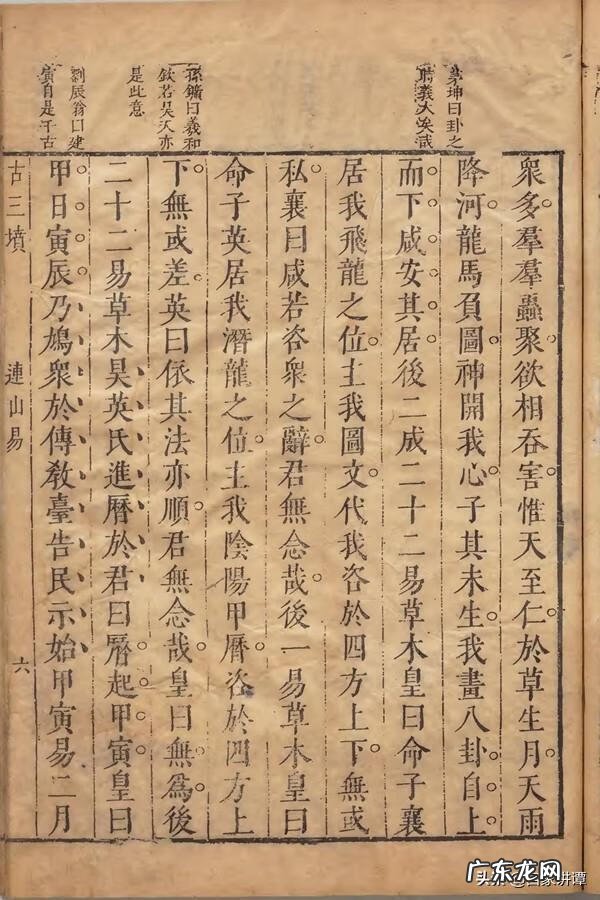 茅坤曰卦之
時義大矣哉
孫鑛曰羲和
欽若昊天亦
是此意
劉辰翁曰建
寅自是千古
衆多羣羣蟲聚欲相吞害惟天至仁於草生月天雨
降河龍馬負圖神開我心子其未生我畫八卦自上
而下咸安其居後二成二十二易草木皇曰命子襄
居我飛龍之位主我圖文代我咨於四方上下無或
私襄曰咸若咨衆之辭君無念哉後一易草木皇曰
命子英居我潛龍之位主我陰陽甲曆咨於四方上
下無或差英曰依其法亦順君無念哉皇曰無爲後
二十二易草木昊英氏進曆於君曰曆起甲寅皇曰
甲日寅辰乃鳩衆於傳教臺告民示始甲寅易二月
古三墳 連山易 六
广东龙网